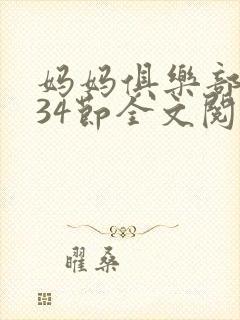 妈妈俱樂部
34节全文阅
曜桑